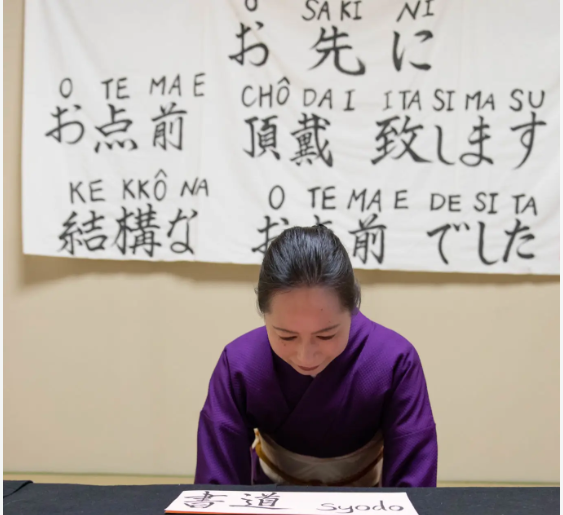 O SAKI NI
お先に
O TE MA E CHÔ DA I ITA SI MA SU
お点前 頂戴 致します
KE KKÔ NA O TE MA E DE SI TA
結構な お点前 でした
書道 syodo